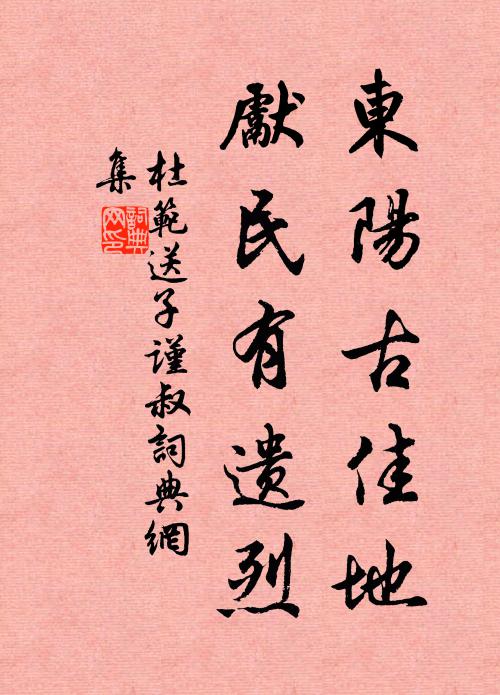 東陽古佳地
獻民有遺烈
杜範送子謹叔詞典網
集
詞典
网印